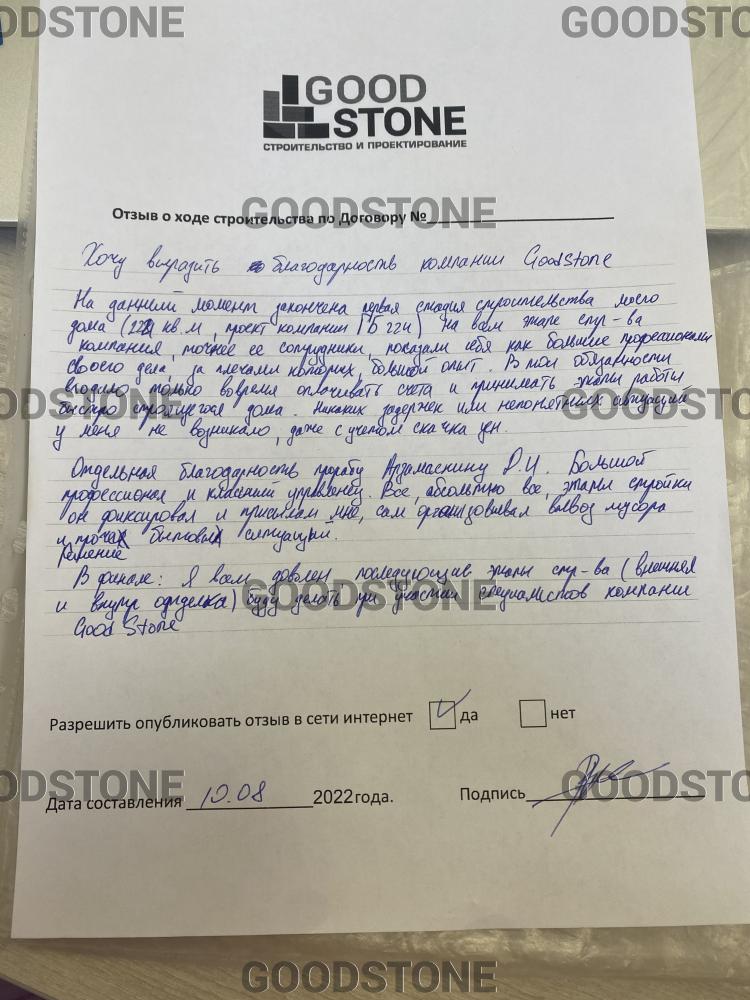 GOODSTONE GOODSTONE
GOOD
STONE
СТРОИТЕЛЬСТВО И ПРОЕКТИРОВАНИЕ
GOODSTONE
Отзыв о ходе строительства по Договору №
Хочу выразить благодарность компании GoodStone
На данный момент закончена первая стадия строительства моего
дома (222 кв.м, проект компании) на всем этапе стр-ва
компания, точнее ее сотрудники, показали себя как большие профессионалы
своего дела, за плечами которых, большой опыт. В мои обязанности
входило только вовремя оплачивать счета и принимать этапы работы
GOODSTONE GOODSTONE
быстро строящегося дома. Никаких задержек или непонятных ситуаций
у меня не возникало, даже с учетом скачка цен.
Отдельная благодарность прорабу Арзамаскину Д.И. Большой
профессионал и классный управленец. Все, абсолютно все, этапы стройки
он фиксировал и присылал мне, сам организовывал вывоз мусора
и решение прочих бытовых ситуаций.
В финале: Я всем доволен последующие этапы стр-ва (внешняя
GOODSTONE
и внутр отделка) буду делать при участии специалистов компании
Good Stone
Разрешить опубликовать отзыв в сети интернет да нет
GOODSTONE GOODSTONE
Дата составления 10.08 2022года. Подпись
GOODSTONE